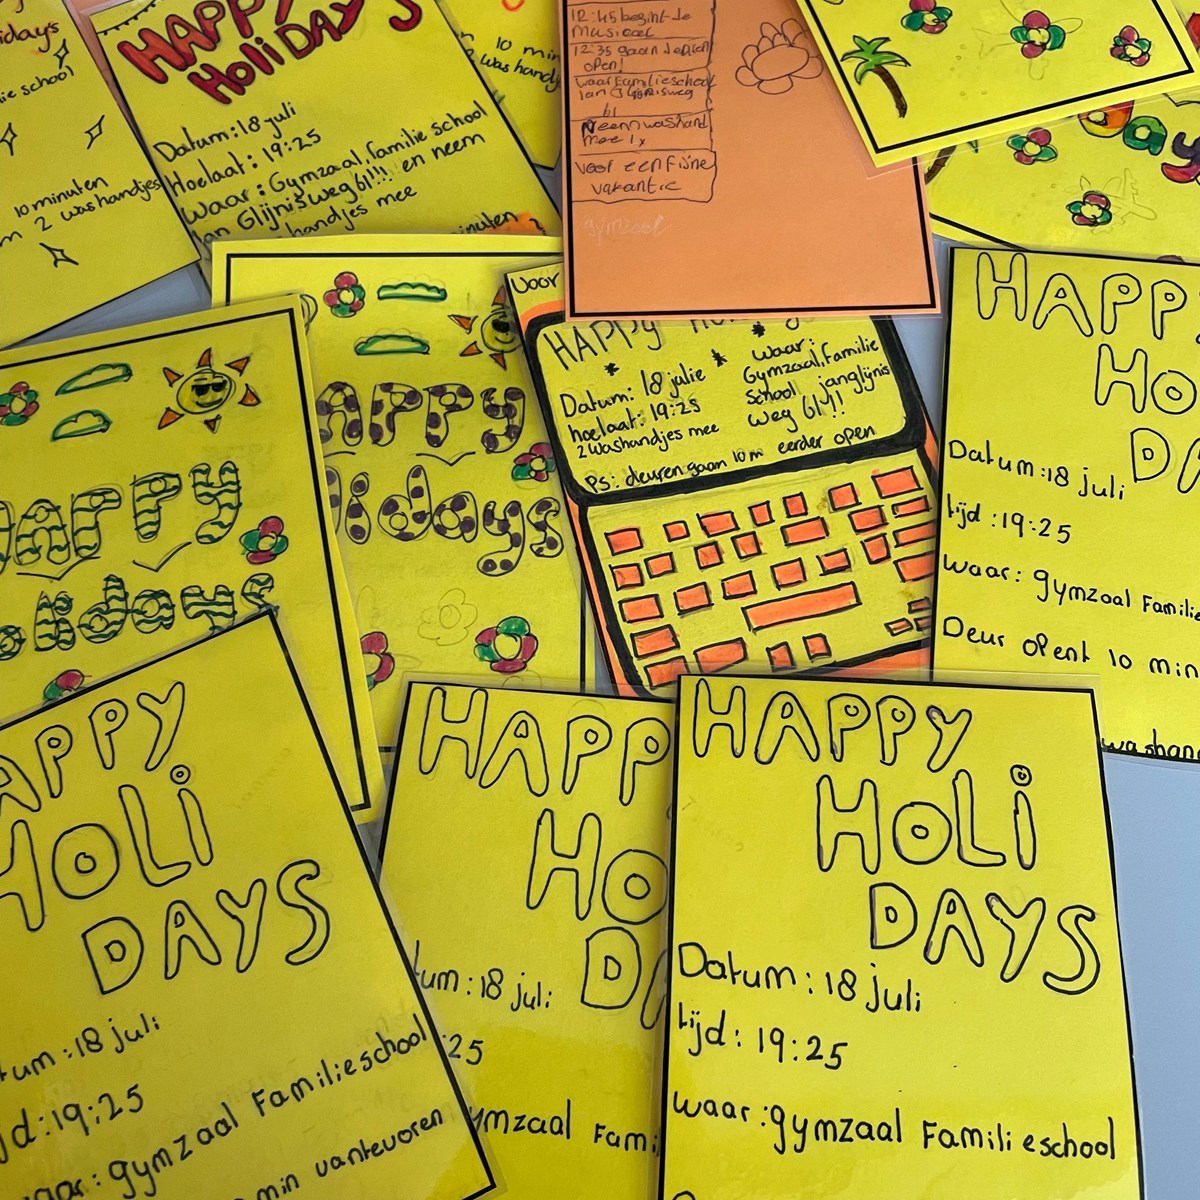 idays
ie school
10 minuten
m 2 washandjes
HAPPY
HoliDAYS
Datum:18 juli
Hoelaat: 19:25
Waar: Gymzaal, familie school
an Glijnisweg 61!!! en neem
handjes mee
10 min
2 washandj
minuten
12:45 begint de
musical
12:35 gaan deuren
open!
waar Familieschool
Jan Glijnisweg
61
Neem washand
mee 1x
voor een fijne
vakantie
gymzaal
day
HAPPY
Holidays
APPY
lidays
Voor
HAPPY Ho
Datum: 18 julie
hoelaat: 19:25
2 washandjes mee
waar:
Gymzaal, Familie
School janglijnis
weg 61!!!
Ps: deuren gaan 10 m eerder open
HAPP
HO
DA
Datum:18 juli
tijd:19:25
waar: gymzaal Familie
Deur opent 10 min
washan
APPY
HOLi
DAYS
tum:18 juli
jd:19:25
aar: gymzaal Familieschool
min vantevoren
HAPP
HO
DA
tum:18 juli
25
ymzaal Fami
HAPPY
HOLi
DAYS
Datum:18 juli
tijd: 19:25
waar:gymzaal Familieschool